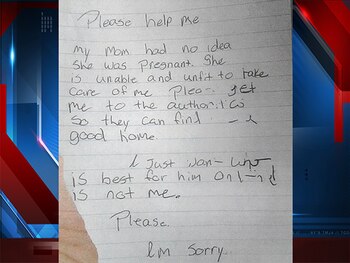 Please help me
my mom had no idea
She was pregnant. She
is unable and unfit to take
care of me Pleas get
me to the authoriti
So they can find
good home.
I Just wan
is best for him
is not me.
Please.
Im sorry.